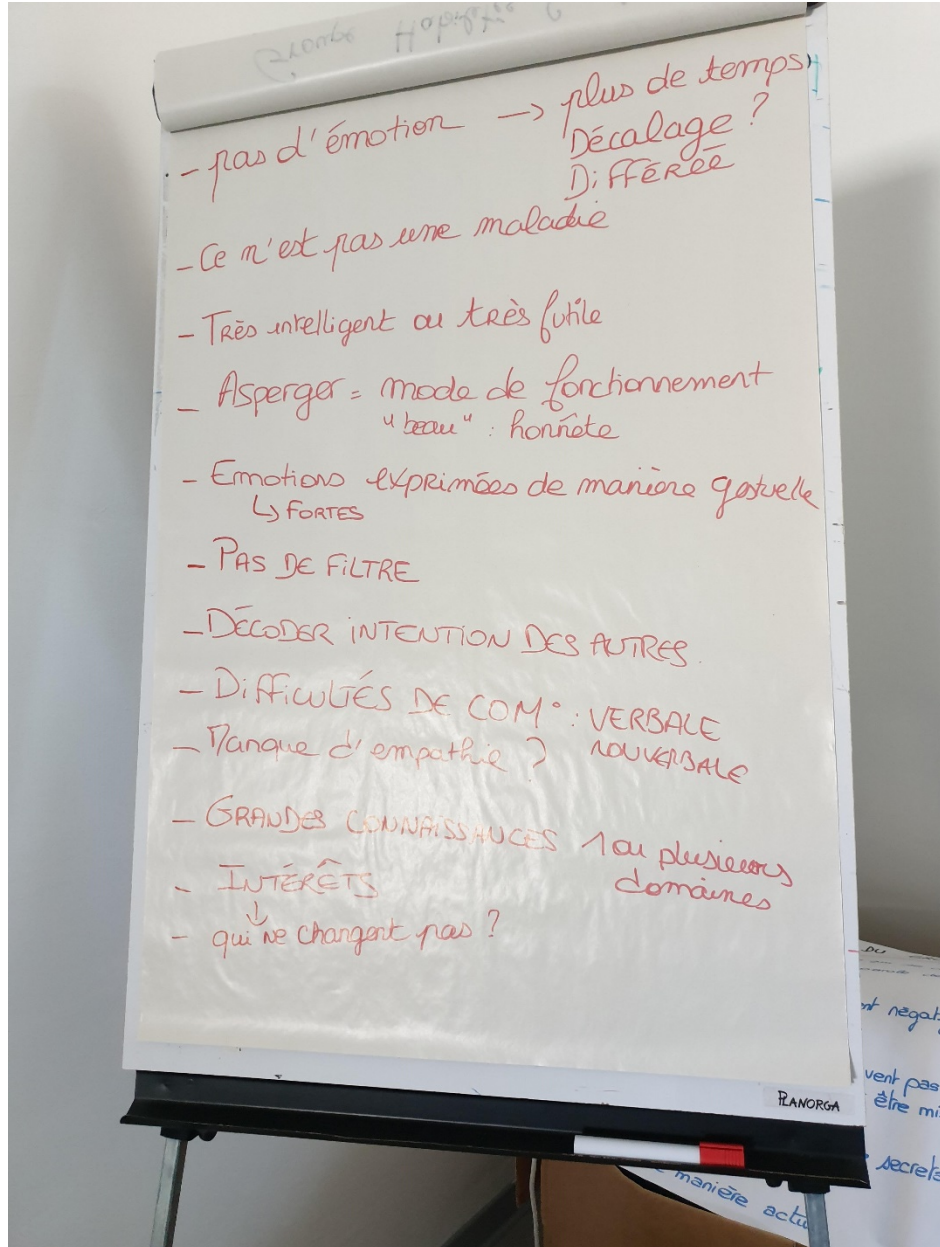 Groupe Habileté
- pas d'émotion → plus de temps
Décalage ?
DiFFÉRÉE
- Ce n'est pas une maladie
- Très intelligent ou très futile
- Asperger = mode de fonctionnement
"beau" : honnête
- Emotions exprimées de manière gestuelle
↳ FORTES
- PAS DE FiLTRE
- DÉCODER iNTENTiON DES AUTRES
- DiFFiCULTÉS DE COM° : VERBALE
NONVERBALE
- Manque d'empathie ?
- GRANDES CONNAiSSANCES 1 ou plusieurs
domaines
- INTÉRÊTS
↓
- qui ne changent pas ?
PLANORGA
DU
négat
vent pas
être mi
secrets
manière actu